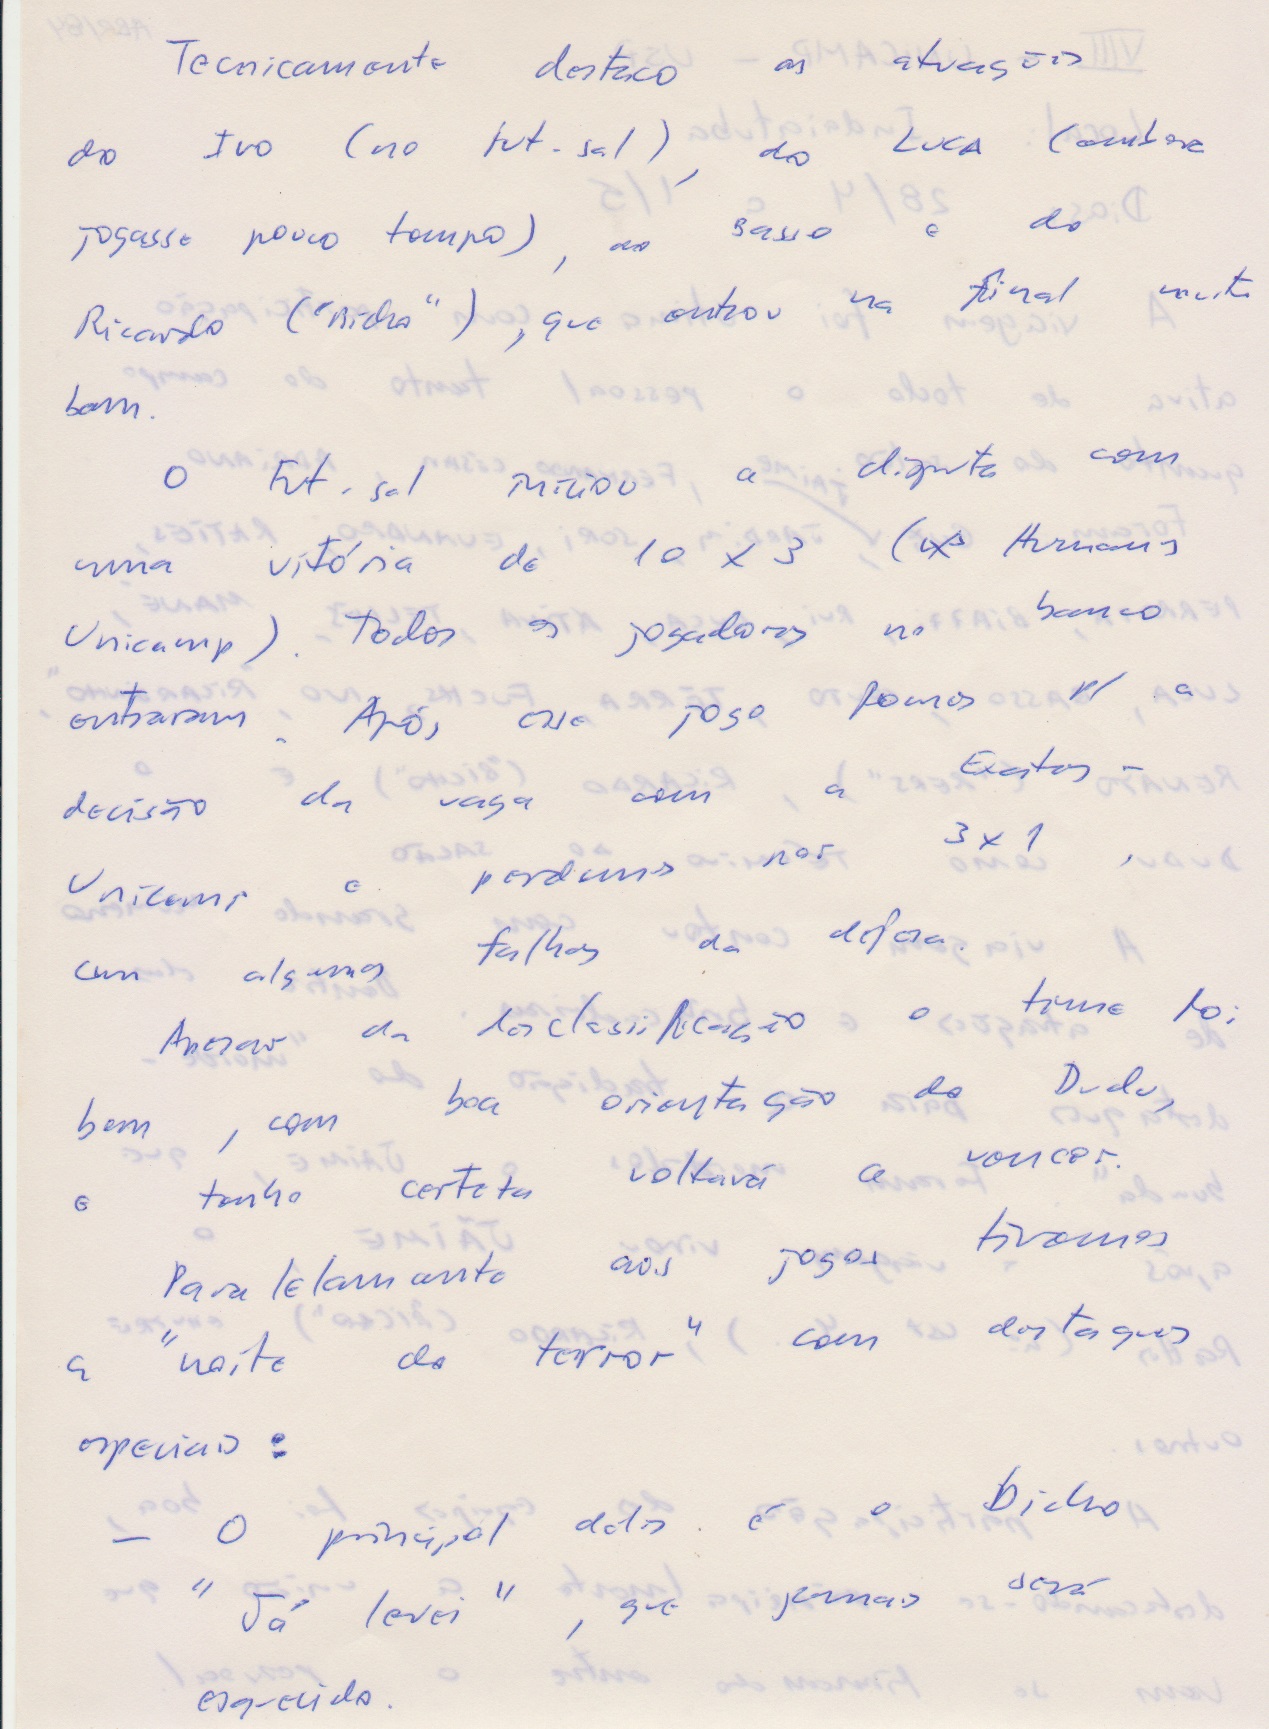 Tecnicamente destaco as atuações
do Ivo (no fut-sal), do LUCA (embora
jogasse pouco tempo), do Sasso e do
Ricardo ("Bicho"), que entrou na final muito
bem.
O fut-sal iniciou a disputa com
uma vitória de 10 x 3 (x Humanas
Unicamp). Todos os jogadores no banco
entraram. Após, esse jogo fomos p/ a
decisão da vaga com a Exatas-
Unicamp e perdemos por 3x1,
com algumas falhas da defesa.
Apesar da desclassificação o time foi
bem, com boa orientação do Dudu,
e tenho certeza voltará a vencer.
Paralelamente aos jogos tivemos
a "noite do terror" com destaques
especiais:
- O principal deles é o Bicho
"Já levei", que jamais será
esquecido.